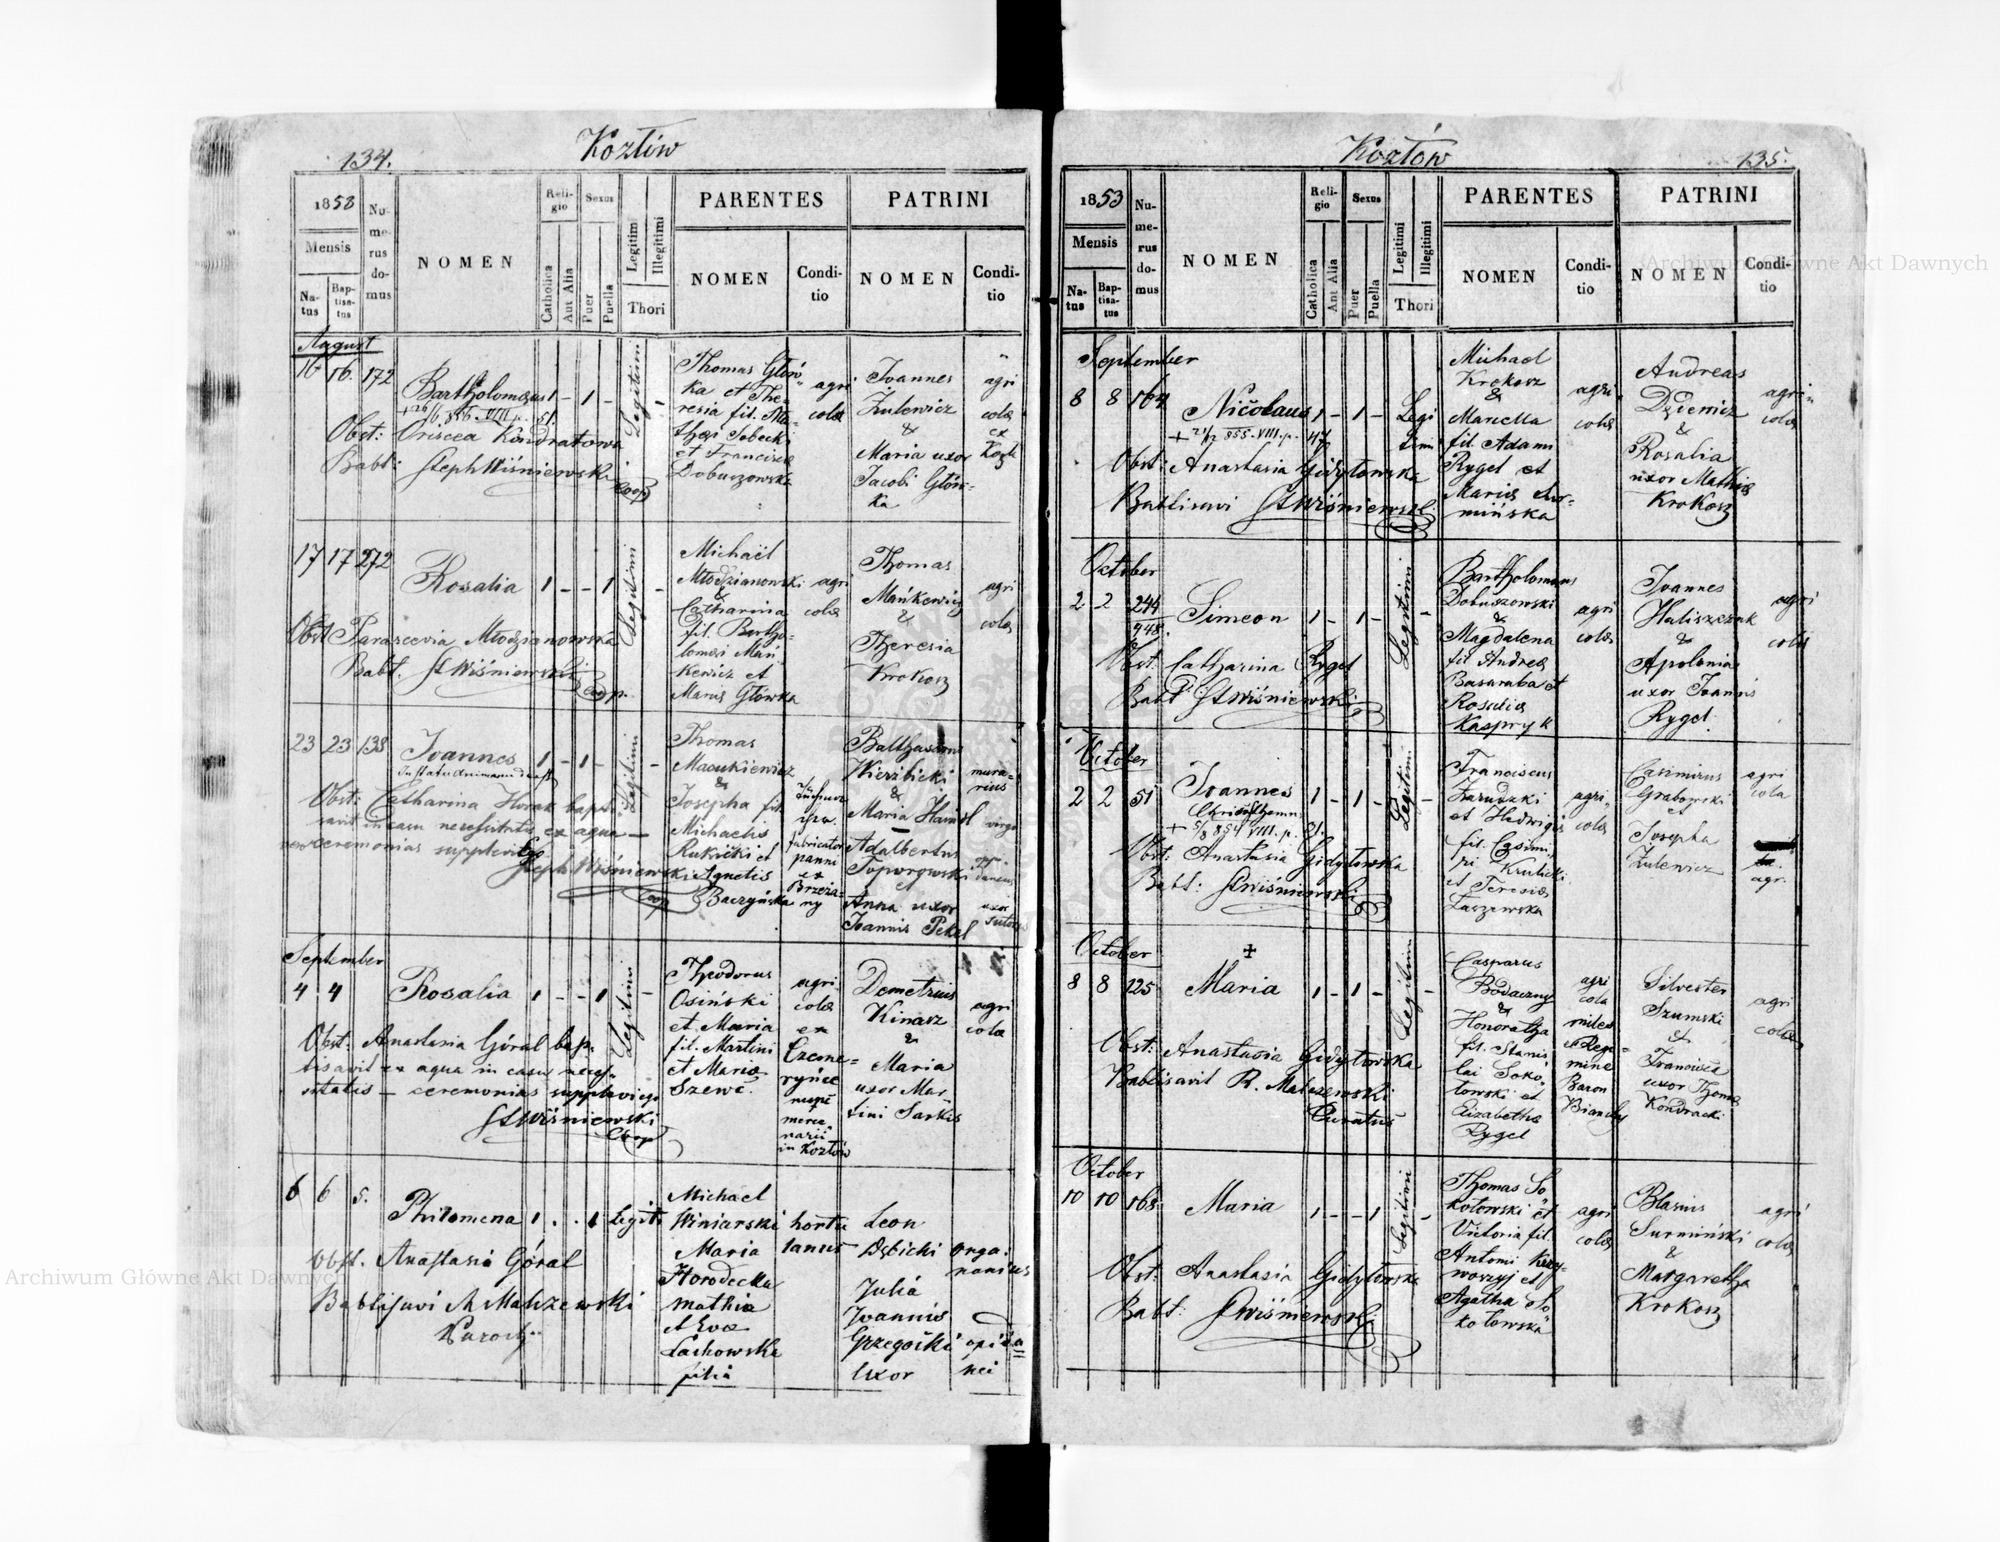 134.
Kozłów
1853
Mensis
Na-
tus
Bap-
tisa-
tus
Nu-
me-
rus
do-
mus
NOMEN
Reli-
gio
Catholica
Aut Alia
Sexus
Puer
Puella
Legitimi
Illegitimi
Thori
PARENTES
NOMEN
Condi-
tio
PATRINI
NOMEN
Condi-
tio
August
16 16. 172
Bartholomæus 1 - 1 -
Legitimi
Obst: Kondratowa
Babt: Steph Wiśniewski
Coop
Thomas Głów-
ka et The-
resia fil. Ma-
thæi Sobecki
et Francisca
Dobuszowska
agri
colæ
Joannes
Żulewicz
&
Maria uxor
Jacobi Głów-
ka
agri
colæ
ex
17 17 272
Rosalia 1 - - 1 -
Legitimi
Obst Parascevia Młodzianowska
Babt. St Wiśniewski
Coop.
Michaël
Młodzianowski
&
Catharina
fil. Bartho-
lomæi Mań
kewicz et
Maria Główka
agri
colæ
Thomas
Mańkewicz
&
Theresia
Krokosz
agri
colæ
23 23 138
Joannes 1 - 1 - -
Legitimi
Obst: Catharina Horak bapti-
savit in casu necessitatis ex aqua -
ceremonias supplevit
Steph Wiśniewski
Coop
Thomas
Masukiewicz
&
Josepha fil.
Michaelis
Rukiecki et
Agnetis
Baczyńska
fabricator
panni
ex
Brzeża-
ny
Balthasarus
Wierzbicki
&
Maria Haindl
Adalbertus
Toporowski
et
Anna uxor
Joannis Pekel
mura-
rius
virgo
uxor
sutoris
September
4 4
Rosalia 1 - - 1 -
Legitimi
Obst: Anastasia Góral bap-
tisavit ex aqua in casu neces-
sitatis - ceremonias supplevit
St Wiśniewski
Coop
Theodorus
Osiński
et Maria
fil. Martini
et Maria
Szewc.
agri
colæ
ex
nunc
merce-
narii
in Kozłów
Demetrius
Kinasz
&
Maria
uxor Mar-
tini Sarkis
agri
colæ
6 6 5.
Philomena 1 . . 1 Legiti
Obst. Anastasia Góral
Babtisavi Malizewski
Paroch
Michael
Winiarski
Maria
Horodecka
Mathia
et Eva
Lachowska
filia
hortu
lanus
Leon
Dębicki
Julia
Joannis
Grzegocki
Uxor
orga-
narius
opida
nei
Kozłów
135.
1853
Mensis
Na-
tus
Bap-
tisa-
tus
Nu-
me-
rus
do-
mus
NOMEN
Reli-
gio
Catholica
Aut Alia
Sexus
Puer
Puella
Legitimi
Illegitimi
Thori
PARENTES
NOMEN
Condi-
tio
PATRINI
NOMEN
Condi-
tio
September
8 8 164
Nicolaus 1 - 1 -
Legi
timi
Obst: Anastasia Gidyłowska
Babtisavi St Wiśniewski
Michael
Krokosz
&
Marella
fil. Adami
Rygel et
Maria Sur-
mińska
agri
colæ
Andreas
&
Rosalia
uxor Mathiæ
Krokosz
agri
colæ
October
2 2 244
Simeon 1 - 1 - -
Legitimi
Obst: Catharina Rygel
Babt St Wiśniewski
Bartholomæus
Dobuszowski
&
Magdalena
fil Andrea
Basaraba et
Rosalia
Kaspryk
agri
colæ
Joannes
Haliszczak
&
Apolonia
uxor Joannis
Rygel.
agri
colæ
October
2 2 51
Joannes 1 - 1 - -
Legitimi
Obst: Anastasia Gidyłowska
Babt: St Wiśniewski
Franciscus
Zarudzki
et Hedwigis
fil. Casimi-
ri Krulicki
et Teresia
Łaszewska
agri
colæ
Casimirus
Grabowski
et
Josepha
Żulewicz
agri
cola
agr.
October
8 8 125
+
Maria 1 - 1 - -
Legitimi
Obst: Anastasia Gidyłowska
Babtisavit R. Malizewski
Curatus
Casparus
Bodaczny
&
Honoratha
fil. Stanis
lai Soko-
łowski et
Elizabetha
Rygel
agri
cola
miles
Regi-
mine
Baron
Bianchy
Silvester
Szumski
&
Francisca
uxor Thoma
Kondracki
agri
colæ
October
10 10 168
Maria 1 - - 1 -
Legitimi
Obst: Anastasia Gidyłowska
Babt: St Wiśniewski
Thomas So
kołowski et
Victoria fil.
Antoni Krzy-
woszyj et
Agatha So
kołowska
agri
colæ
Blasius
Surmiński
&
Margaretha
Krokosz
agri
colæ
Archiwum Główne Akt Dawnych
Archiwum Główne Akt Dawnych